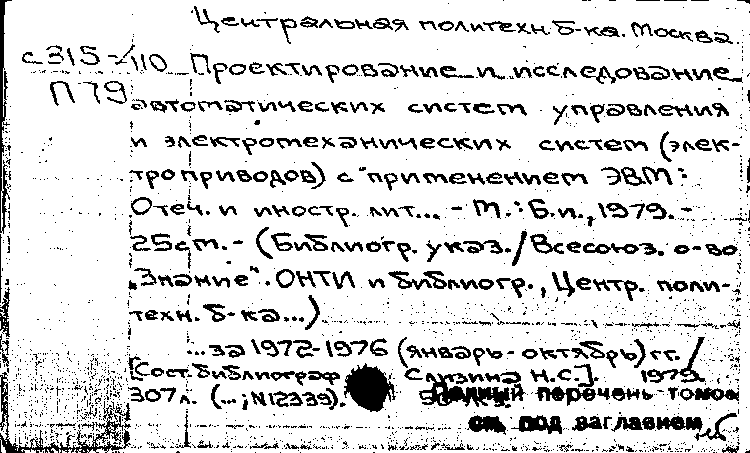 Центральная политехн. б-ка. Москва
с315-/110 Проектирование и исследование
П79 автоматических систем управления
и электромеханических систем (элек-
троприводов) с применением ЭВМ:
Отеч. и иностр. лит... - М.: Б.и., 1979. -
25см. - (Библиогр. указ. / Всесоюз. о-во
"Знание". ОНТИ и библиогр., Центр. поли-
техн. б-ка...)
...за 1972-1976 (январь-октябрь) гг. /
[Сост. библиограф Слизина Н.С.]. 1979.
307л. (...; N12339).
Полный перечень томов
см. под заглавием